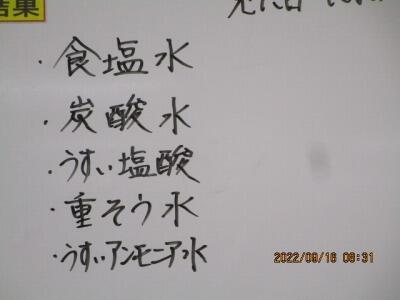 結果
・食塩水
・炭酸水
・うすい塩酸
・重そう水
・うすいアンモニア水
2022/09/16 08:31